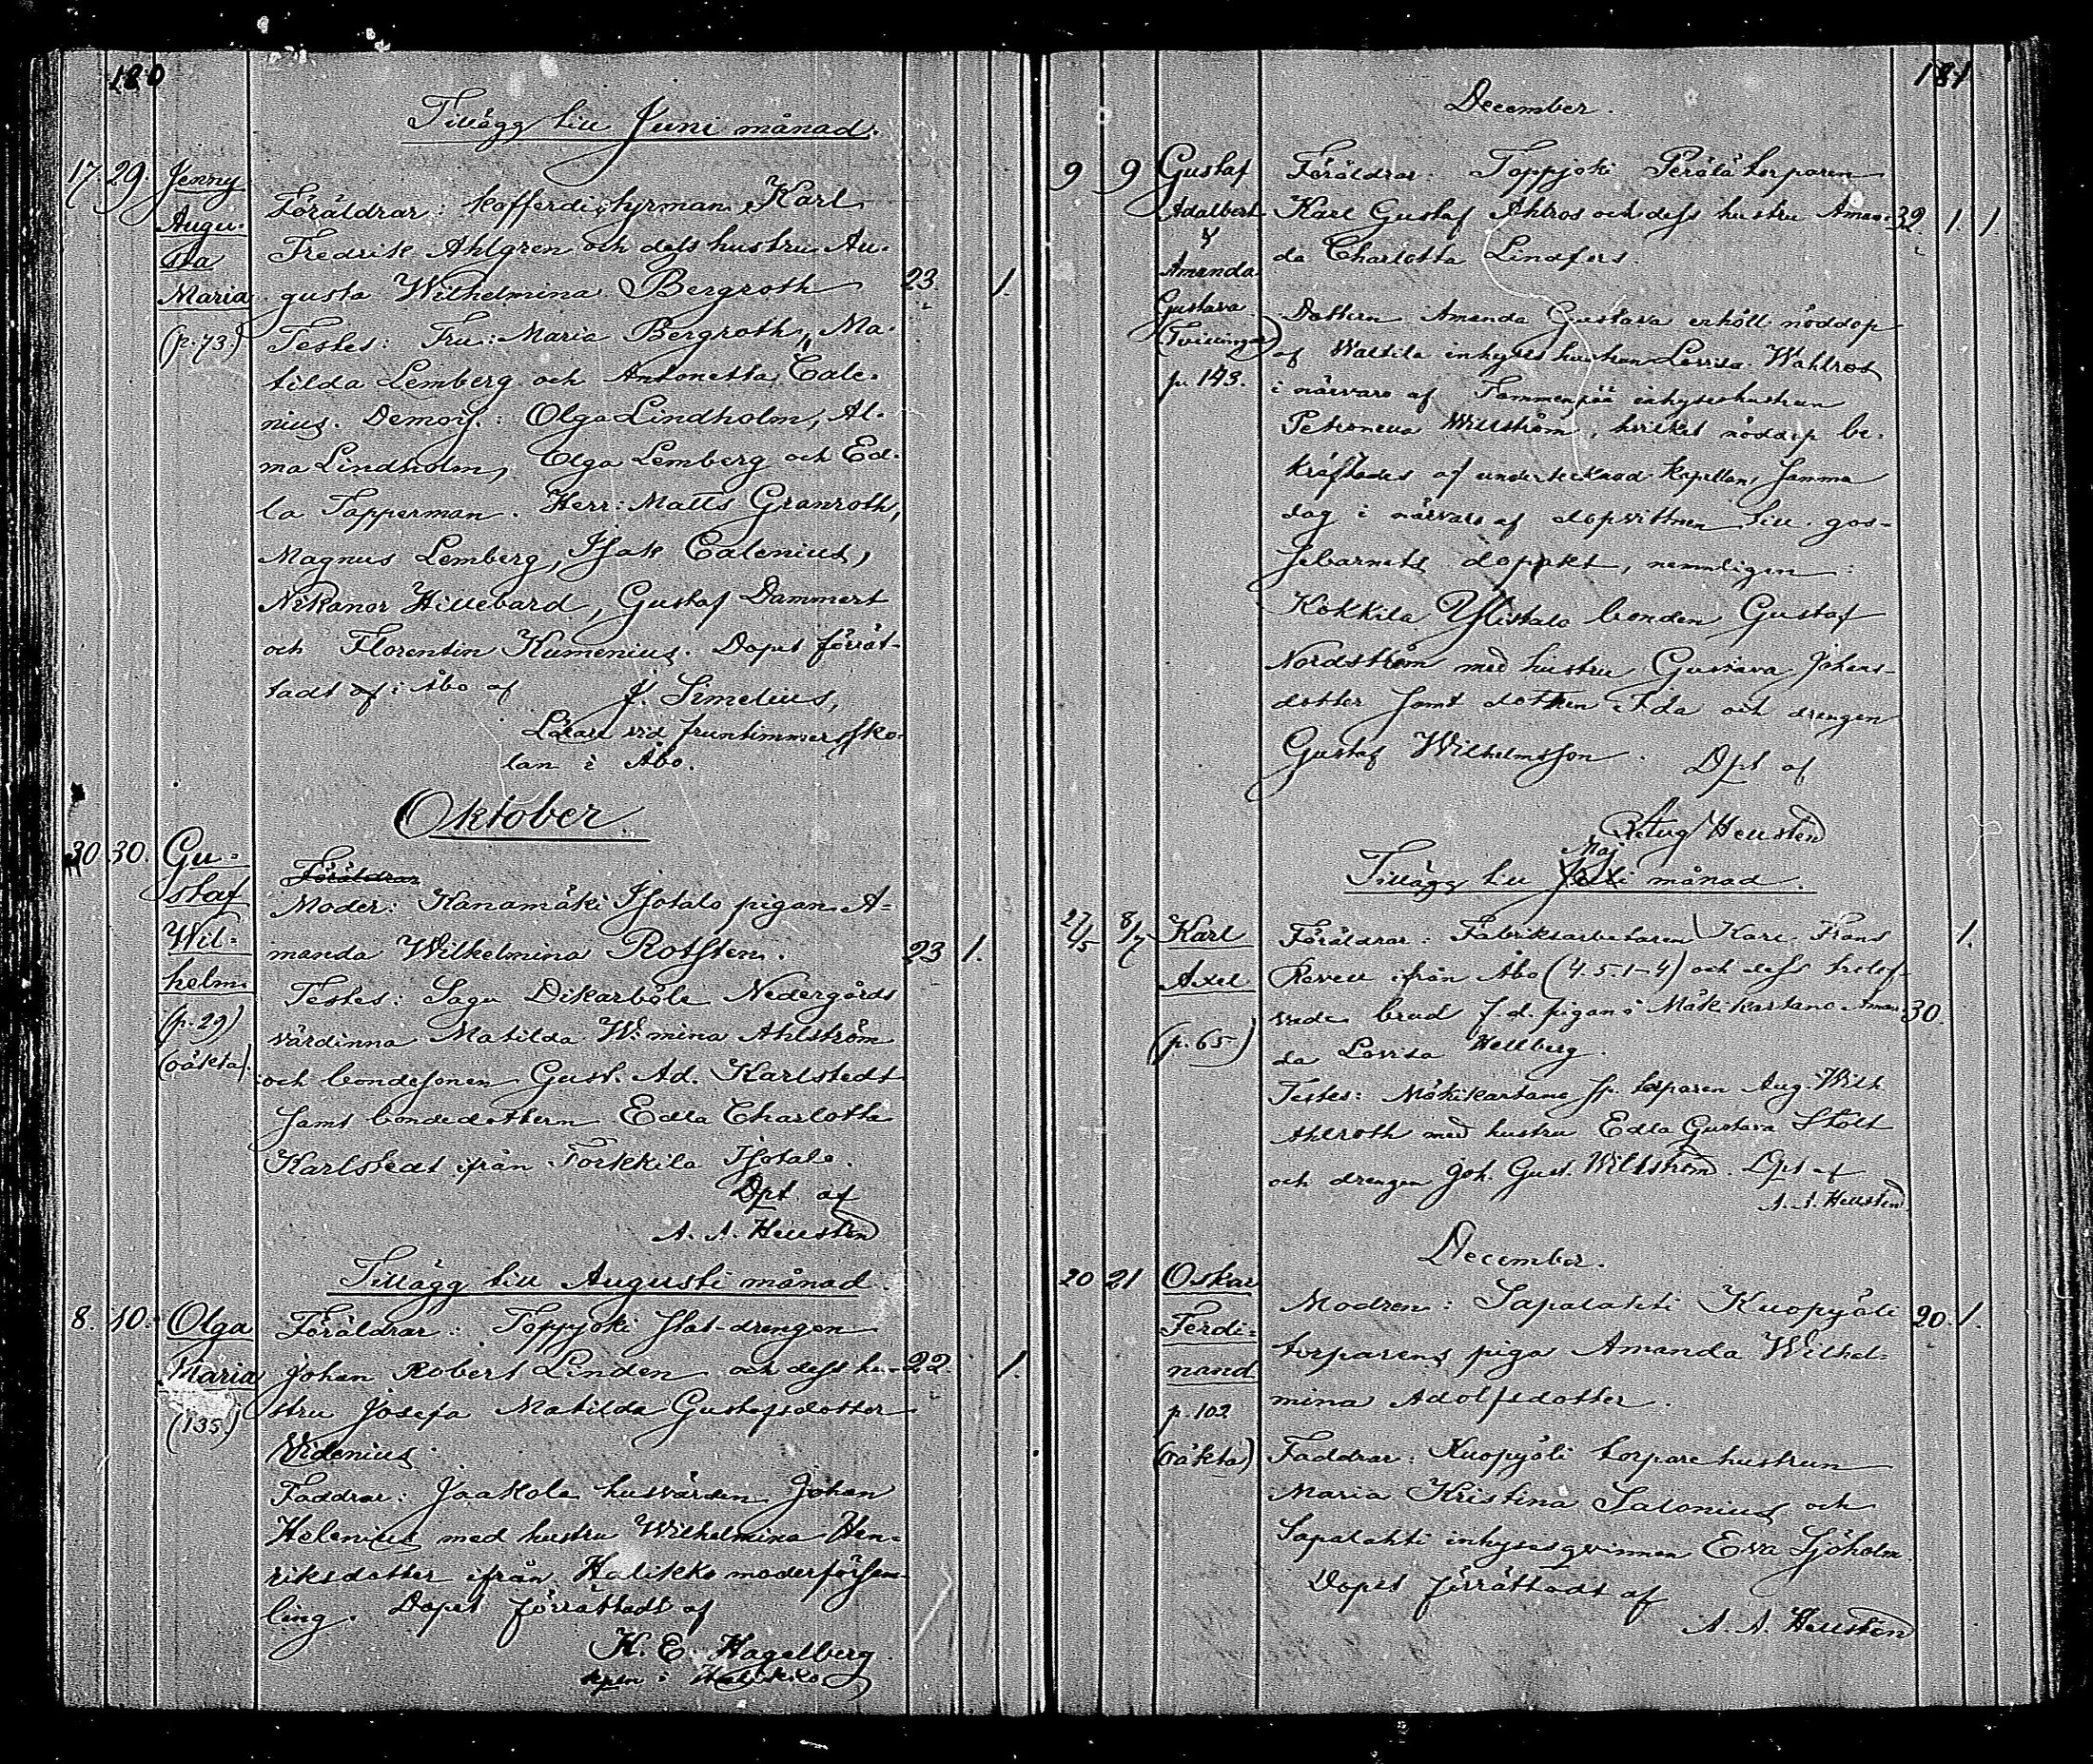 180
Tillägg till Juni månad.
17. 29. Jenny
Augu-
sta
Maria
(p. 73.)
Föräldrar: kofferdistyrman Karl
Fredrik Ahlgren och dess hustru Au-
gusta Wilhelmina Bergroth 23. 1.
Testes: Fru: Maria Bergroth, Ma-
tilda Lemberg och Antonetta Cale-
nius. Demois.: Olga Lindholm, Al-
ma Lindholm, Olga Lemberg och Ed-
la Tapperman. Herr: Matts Granroth,
Magnus Lemberg, Isak Calenius,
Nikanor Hillebard, Gustaf Dammert
och Florentin Kumenius. Dopet förrät-
tadt af i Åbo af J. Simelius,
Lärare vid fruntimmerssko-
lan i Åbo.
Oktober
30. 30. Gu-
staf
Wil-
helm.
(p. 29)
(oäkta).
Föräldrar
Moder: Hanamäki Isotalo pigan A-
manda Wilhelmina Rotsten. 23 1.
Testes: Sagu Dikarböle Nedergårds
värdinna Matilda W:mina Ahlström
och bondesonen Gust. Ad. Karlstedt
samt bondedottern Edla Charlotta
Karlstedt ifrån Torkkila Isotalo.
Dpt af
A. A. Hellsten
Tillägg till Augusti månad.
8. 10. Olga
Maria
(135.)
Föräldrar: Toppjoki stat-drengen
Johan Robert Linden och dess hu- 22. 1.
stru Josefa Matilda Gustafsdotter
Widenius.
Faddrar: Jaakola husvärden Johan
Helenius med hustru Wilhelmina Hen-
riksdotter ifrån Halikko moderförsam-
ling. Dopet förrättadt af
K. E. Hagelberg
kpln i Halikko.
181
December.
9 9 Gustaf
Adalbert
&
Amanda
Gustava
(Tvillingar)
p. 143.
Föräldrar: Toppjoki Perälä torparen
Karl Gustaf Ahlros och dess hustru Aman- 32. 1. 1
da Charlotta Lindfors.
Dottren Amanda Gustava erhöll nöddop
af Waltila inhyses hustrun Lovisa Wahlros
i närvaro af Tammenpää inhyseshustrun
Petronella Willström, hvilket nöddop be-
kräftades af undertecknad kapellan, samma
dag i närvaro af dopvittnen till gos-
sebarnets dopakt, nemnligen:
Kokkila Ylistalo bonden Gustaf
Nordström med hustru Gustava Johans-
dotter samt dottren Ida och drengen
Gustaf Wilhelmsson. Dpt af
Aug Hellsten
Maj
Tillägg till Juli månad.
27/5 8/7 Karl
Axel
(p. 65)
Föräldrar: Fabriksarbetaren Karl Frans 1.
Revell ifrån Åbo (4. 5. 1-4) och dess trolof-
vade brud f. d. pigan i Mäkikartano Aman- 30.
da Lovisa Hellberg.
Testes: Mäkikartano torparen Aug. Wilh.
Ahlroth med hustru Edla Gustava Stolt
och drengen Joh. Gust. Willström. Dpt af
A. A. Hellsten
December.
20 21 Oskar
Ferdi-
nand
p. 102
(oäkta)
Modren: Sapalahti Kuopyöli 20. 1.
torparens piga Amanda Wilhel-
mina Adolfsdotter.
Faddrar: Kuopyöli torparehustrun
Maria Kristina Salonius och
Sapalahti inhysesqvinnan Eva Sjöholm.
Dopet förrättadt af
A. A. Hellsten